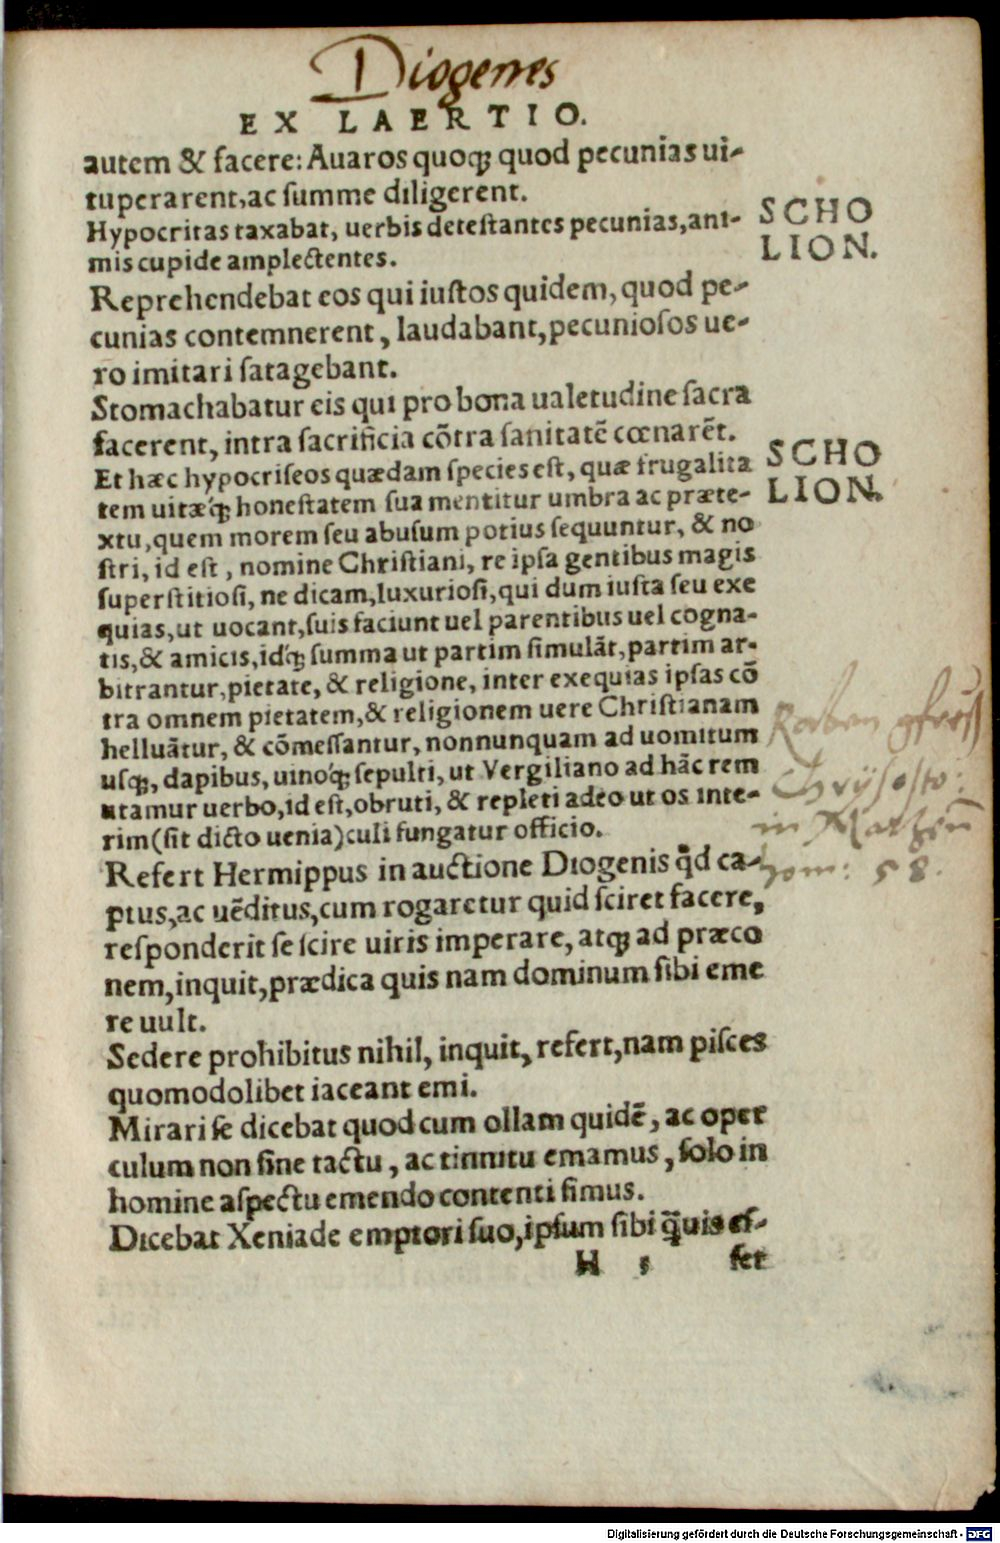 Diogenes
EX LAERTIO.
autem & facere: Auaros quoqꝫ quod pecunias ui-
tuperarent, ac ſumme diligerent.
Hypocritas taxabat, uerbis deteſtantes pecunias, ani-
mis cupide amplectentes.
SCHO
LION.
Reprehendebat eos qui iuſtos quidem, quod pe-
cunias contemnerent, laudabant, pecunioſos ue-
ro imitari ſatagebant.
Stomachabatur eis qui pro bona ualetudine ſacra
facerent, intra ſacrificia cõtra ſanitatẽ cœnarẽt.
Et hæc hypocriſeos quædam ſpecies eſt, quæ frugalita
tem uitæqꝫ́ honeſtatem ſua mentitur umbra ac præte-
xtu, quem morem ſeu abuſum potius ſequuntur, & no
ſtri, id eſt, nomine Chriſtiani, re ipſa gentibus magis
ſuperſtitioſi, ne dicam, luxurioſi, qui dum iuſta ſeu exe
quias, ut uocant, ſuis faciunt uel parentibus uel cogna-
tis, & amicis, idqꝫ́ ſumma ut partim ſimulãt, partim ar-
bitrantur, pietate, & religione, inter exequias ipſas cõ
tra omnem pietatem, & religionem uere Chriſtianam
helluãtur, & cõmeſſantur, nonnunquam ad uomitum
uſqꝫ, dapibus, uinoqꝫ́ ſepulti, ut Vergiliano ad hãc rem
utamur uerbo, id eſt, obruti, & repleti adeo ut os inte-
rim (ſit dicto uenia) culi fungatur officio.
SCHO
LION.
Raben
Chrÿsosto:
in Matheũ
hom: 58.
Refert Hermippus in auctione Diogenis qd̃ ca-
ptus, ac uẽditus, cum rogaretur quid ſciret facere,
reſponderit ſe ſcire uiris imperare, atqꝫ ad præco
nem, inquit, prædica quis nam dominum ſibi eme
re uult.
Sedere prohibitus nihil, inquit, refert, nam piſces
quomodolibet iaceant emi.
Mirari ſe dicebat quod cum ollam quidẽ, ac oper
culum non ſine tactu, ac tinnitu emamus, ſolo in
homine aſpectu emendo contenti ſimus.
Dicebat Xeniade emptori ſuo, ipſum ſibi q̃uis eſ-
H 5 ſet
Digitalisierung gefördert durch die Deutsche Forschungsgemeinschaft - DFG